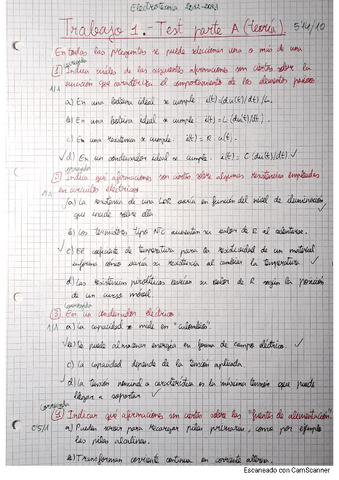 Electrotecnia 2022-2023
Trabajo 1. Test parte A (teoría).
5'4/10
En todas las preguntas se puede seleccionar una o más de una
corregido
① Indica cuáles de las siguientes afirmaciones son ciertas sobre la
ecuación que caracteriza el comportamiento de los elementos pasivos
1/1
a) En una bobina ideal se cumple i(t)=(du(t)/dt)/L.
b) En una bobina ideal se cumple: i(t) = L (du(t)/dt).
c) En una resistencia se cumple: i(t) = R u(t).
✓d) En un condensador ideal se cumple: i(t) = C (du(t)/dt) ✓
② Indica qué afirmaciones son ciertas sobre algunas resistencias empleadas
en circuitos eléctricos.
a) La resistencia de una LDR varía en función del nivel de iluminación
que incide sobre ella
b) Los termistores tipo NTC aumentan su valor de R al calentarse.
c) El coeficiente de temperatura para la resistividad de un material
informa cómo varía su resistencia al cambiar la temperatura. ✓
d) Las resistencias variables su valor de R según la posición
de un cursor móvil.
corregido
③ En un condensador eléctrico
1/1
a) La capacidad se mide en "culombios".
b) Se puede almacenar energía en forma de campo eléctrico. ✓
c) La capacidad depende de la tensión aplicada.
d) La tensión nominal o característica es la máxima tensión que puede
llegar a soportar ✓
corregido
Indicar qué afirmaciones son ciertas sobre las "fuentes de alimentación".
0'5/1
a) Pueden servir para recargar pilas primarias, como por ejemplo
las pilas alcalinas.
b) Transforman corriente continua en corriente alterna.
Escaneado con CamScanner